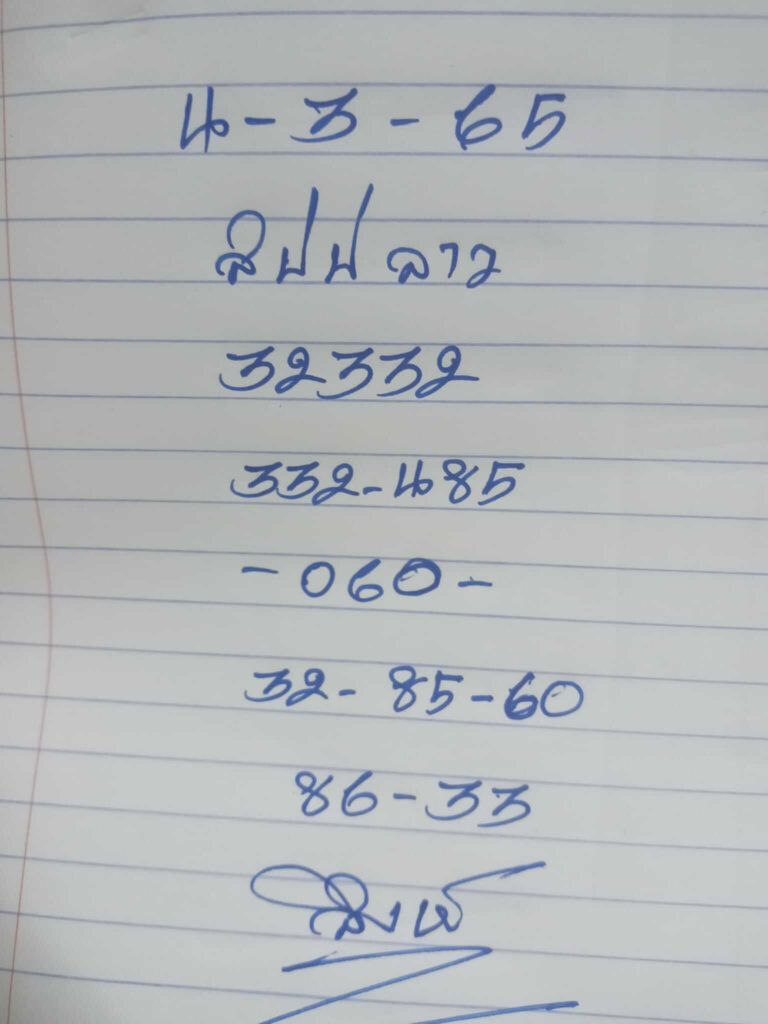 4-3-65
สปป ลาว
32332
332-485
-060-
32-85-60
86-33